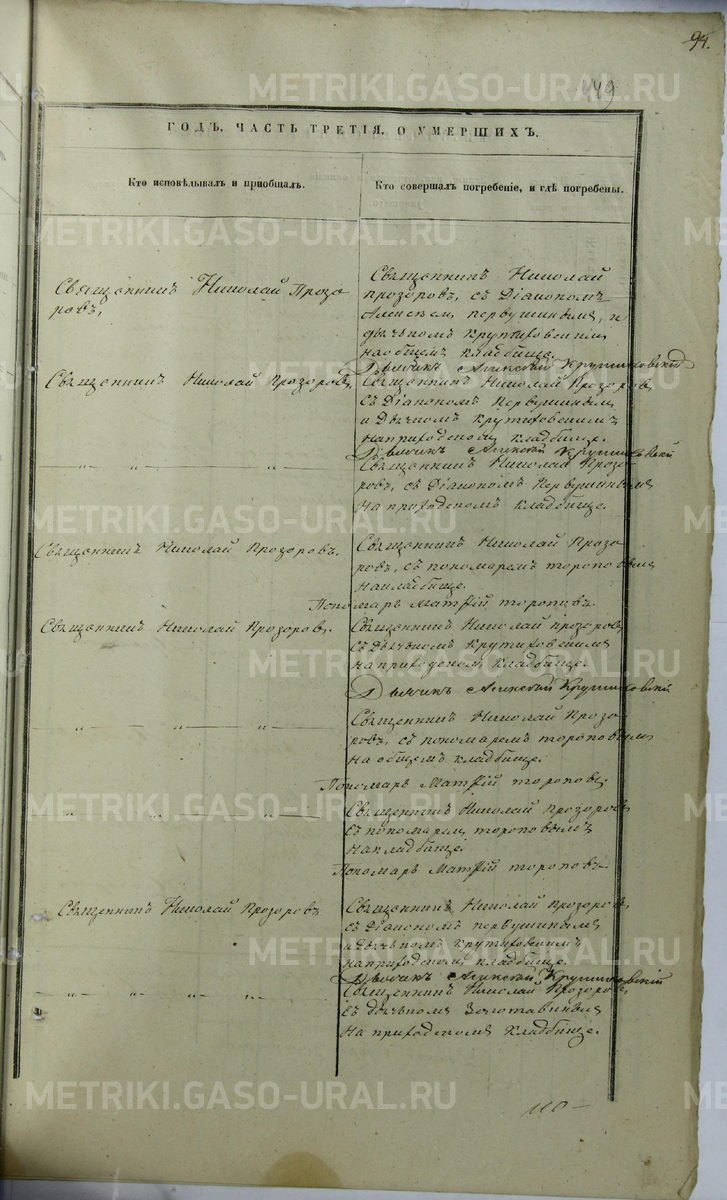 94.
449
ГОДЪ, ЧАСТЬ ТРЕТІЯ, О УМЕРШИХЪ.
Кто исповѣдывалъ и приобщалъ.
Кто совершалъ погребеніе, и гдѣ погребены.
Священникъ Николай Прозо
ровъ,
Священникъ Николай
Прозоровъ, съ Діакономъ
Алексѣем Первушиным, и
дьячкомъ Крутиховскимъ
на общемъ кладбище.
Дьячикъ Алексѣй Крутиховскій
Священникъ Николай Прозоровъ,
Священникъ Николай Прозоровъ,
съ Діакономъ Первушиным
и Дьячкомъ Крутиховскимъ
на приходском кладбище.
Дьячикъ Алексѣй Крутиховскій
-„- -„- -„-
Священникъ Николай Прозо
ровъ, съ Діакономъ Первушинымъ
на приходскомъ кладбище.
Священникъ Николай Прозоровъ.
Священникъ Николай Прозо
ровъ, съ пономаремъ Тороповымъ
на кладбище.
Пономарь Матѳій Тороповъ.
Священникъ Николай Прозоровъ.
Священникъ Николай Прозоровъ,
съ дьячкомъ Крутиховскимъ
на приходском кладбище.
Дьячикъ Алексѣй Крутиховскій
-„- -„- -„-
Священникъ Николай Прозо
ровъ, съ пономаремъ Тороповымъ
на общемъ кладбище.
Пономарь Матѳій Тороповъ
„ „ -„-
Священникъ Николай Прозоровъ
съ пономарем Тороповымъ
на кладбище.
Пономарь Матѳій Тороповъ
Священникъ Николай Прозоровъ
Священникъ Николай Прозоровъ,
съ Діакономъ Первушинымъ
и дьячкомъ Крутиховскимъ
на приходском кладбище.
Дьячикъ Алексѣй Крутиховскій
-„- -„- „ „-
Священникъ Николай Прозоровъ,
съ дьячкомъ Золотавинымъ
на приходскомъ кладбище.
110 –
METRIKI.GASO-URAL.RU
METRIKI.GASO-URAL.RU
METRIKI.GASO-URAL.RU
METRIKI.GASO-URAL.RU
METRIKI.GASO-URAL.RU
METRIKI.GASO-URAL.RU
METRIKI.GASO-URAL.RU
METRIKI.GASO-URAL.RU
METRIKI.GASO-URAL.RU